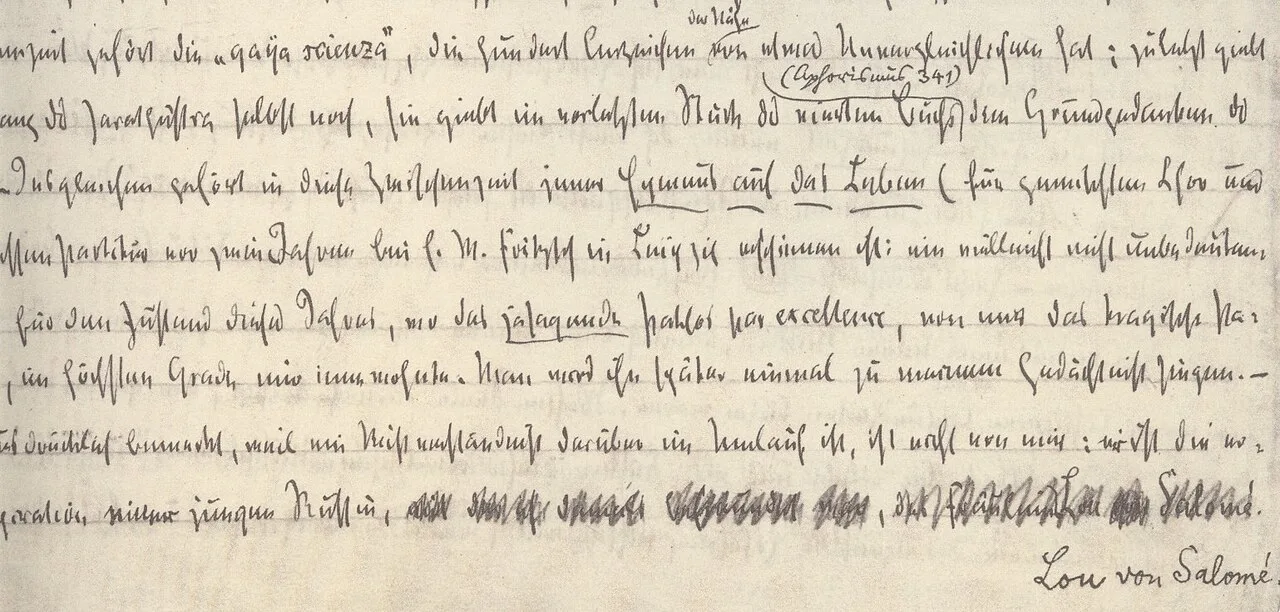 enzeit gehört die „gaya scienza“, die hundert Anzeichen der Nähe von etwas Unvergleichlichem hat; zuletzt giebt
ang des Zarathustra selbst noch, sie giebt im vorletzten Stück des vierten Buchs (Aphorismus 341) den Grundgedanken des
– Insgleichen gehört in diese Zwischenzeit jener Hymnus auf das Leben (für gemischten Chor und
essen Partitur vor zwei Jahren bei E. W. Fritzsch in Leipzig erschienen ist: ein vielleicht nicht unbedeuten-
für den Zustand dieses Jahres, wo das jasagende Pathos par excellence, von mir das tragische Pa-
, im höchsten Grade mir innewohnte. Man wird ihn später einmal zu meinem Gedächtniß singen. –
usdrücklich bemerkt, weil ein Mißverständniß darüber im Umlauf ist, ist nicht von mir: er ist die er-
piration einer jungen Russin, , des Fräulein Lou von Salomé.
Lou von Salomé.